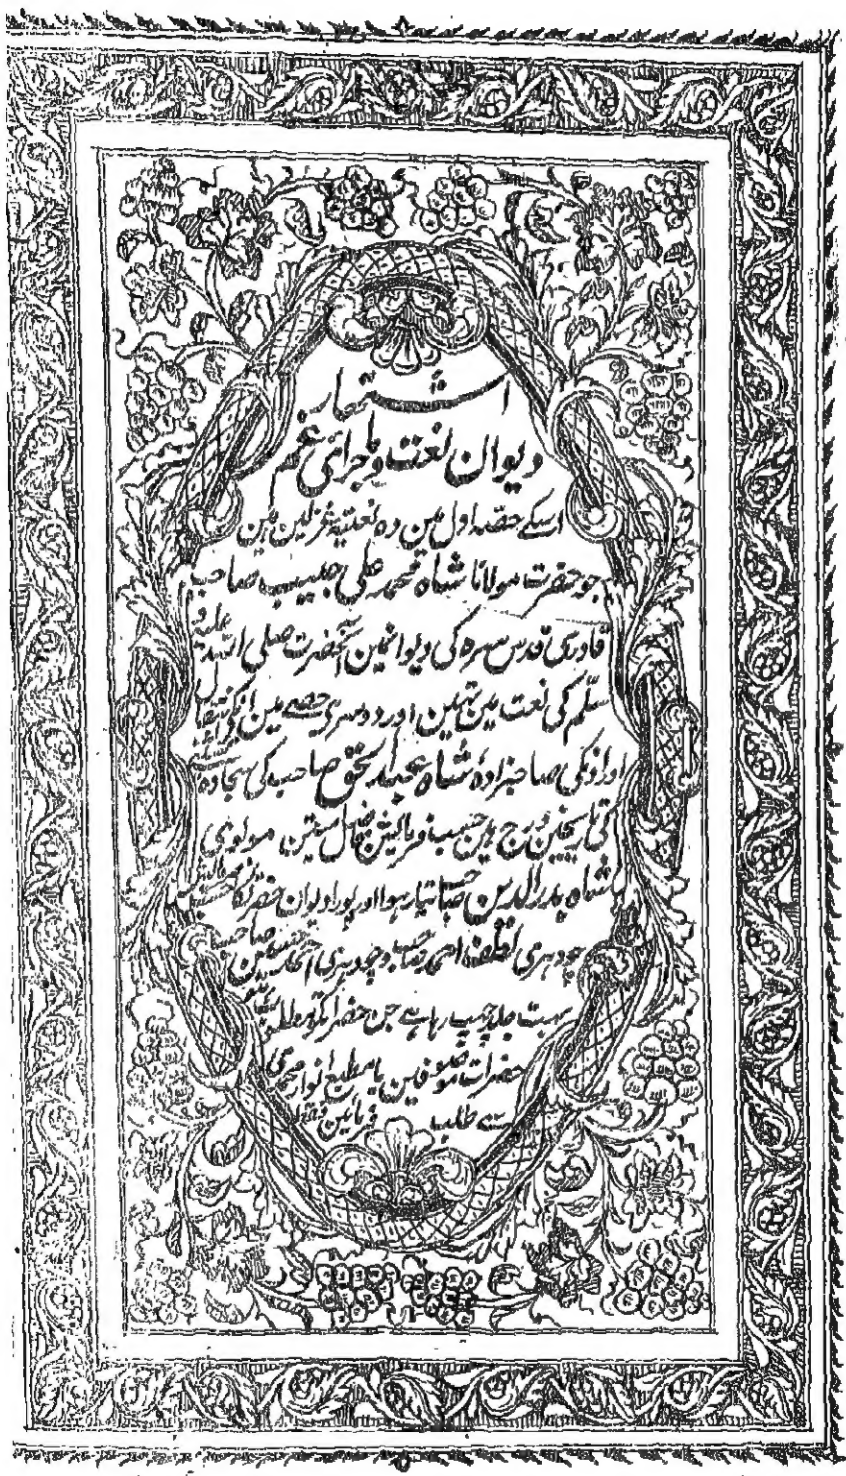 اشتہار
دیوان نعت و ماجرائی غم
اسکے حصّہ اول مین وہ نعتیہ غزلین ہین
جو حضرت مولانا شاہ محمد علی حبیب صاحب
قادری قدس سرہ کی دیوانمین آنحضرت صلی اللہ علیہ و
سلّم کی نعت مین تہین اور دوسری حصے مین انکی انتقال
اور اونکی صاحبزادۂ شاہ عبد الحق صاحب کی سجادہ
کی تاریخین درج ہین حسب فرمایش مولوی
شاہ بدر الدین صاحب تیار ہوا اور پورا دیوان حضرت کا حسب
چودہری لطف احمد صاحب و چودہری صاحب
بہت جلد چھپ رہا ہے جن حضرات کو مطلوب
حضرات موصوفین یا مطبع انوار محمدی
سے طلب فرمائین فقط